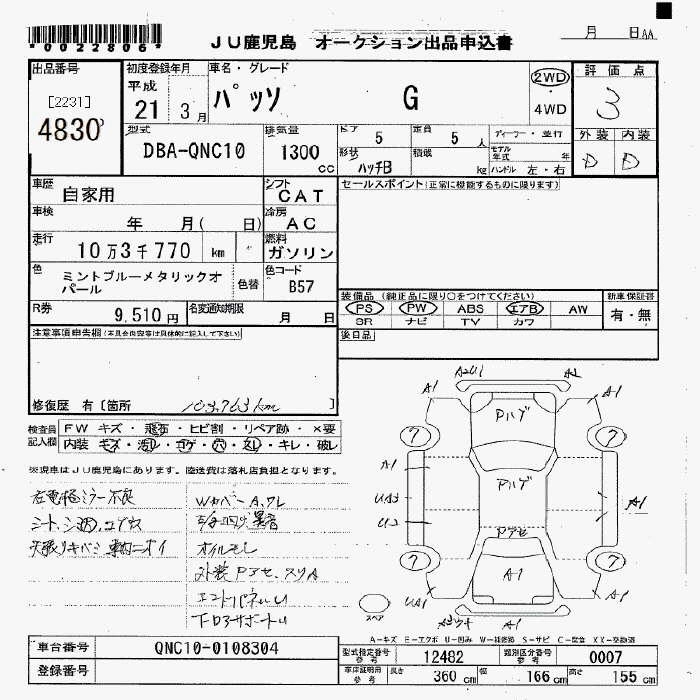 *0022806*
JU鹿児島 オークション出品申込書
月 日 AA
出品番号
[2231]
4830
初度登録年月
平成
21 3月
車名・グレード
パッソ G
2WD
4WD
評価点
3
外装 内装
D D
型式
DBA-QNC10
排気量
1300 cc
ドア 5
定員 5人
形状 ハッチB
積載 kg
ディーラー・並行
モデル年式 年
ハンドル 左・右
車歴 自家用
シフト CAT
セールスポイント(正常に機能するものに限ります)
車検 年 月( 日)
冷房 AC
走行 10万3千770 km
燃料 ガソリン
色 ミントブルーメタリックオパール
色替
色コード B57
装備品(純正品に限り○をつけてください)
新車保証書
PS PW ABS エアB AW
SR ナビ TV カワ
有・無
R券 9,510円
名変通知期限 月 日
後日品
注意事項申告欄(本具合内容等は具体的に記入して下さい)
修復歴 有〔箇所 103,763km 〕
検査員記入欄
FW キズ・飛石・ヒビ割・リペア跡・×要
内装・キズ・汚レ・コゲ・穴・スレ・キレ・破レ
※現車はJU鹿児島にあります。陸送費は落札店負担となります。
右電格ミラー不良
オイルモレ
A1
A1
A1
A1
A1
A1
UA1
7
7
7
7
Pハゲ
Pハゲ
Pアセ
スペア
A-キズ E-エクボ U-凹み W-補修跡 S-サビ C-腐食 XX-交換済
車台番号 QNC10-0108304
登録番号
型式指定番号 参考 12482
類別区分番号 参考 0007
車庫証明用 参考 長さ 360cm 幅 166cm 高さ 155cm